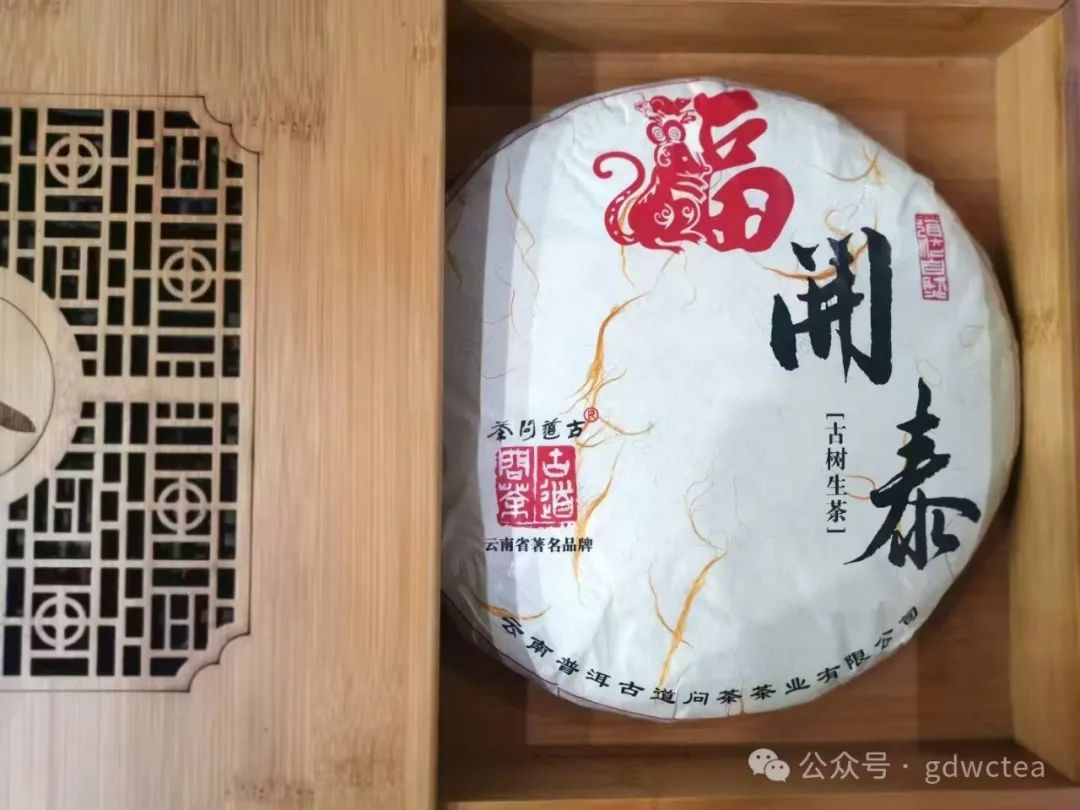 福
開
泰
[古树生茶]
茶问道古®
古道
問茶
云南省著名品牌
云南普洱古道问茶茶业有限公司
公众号 · gdwctea